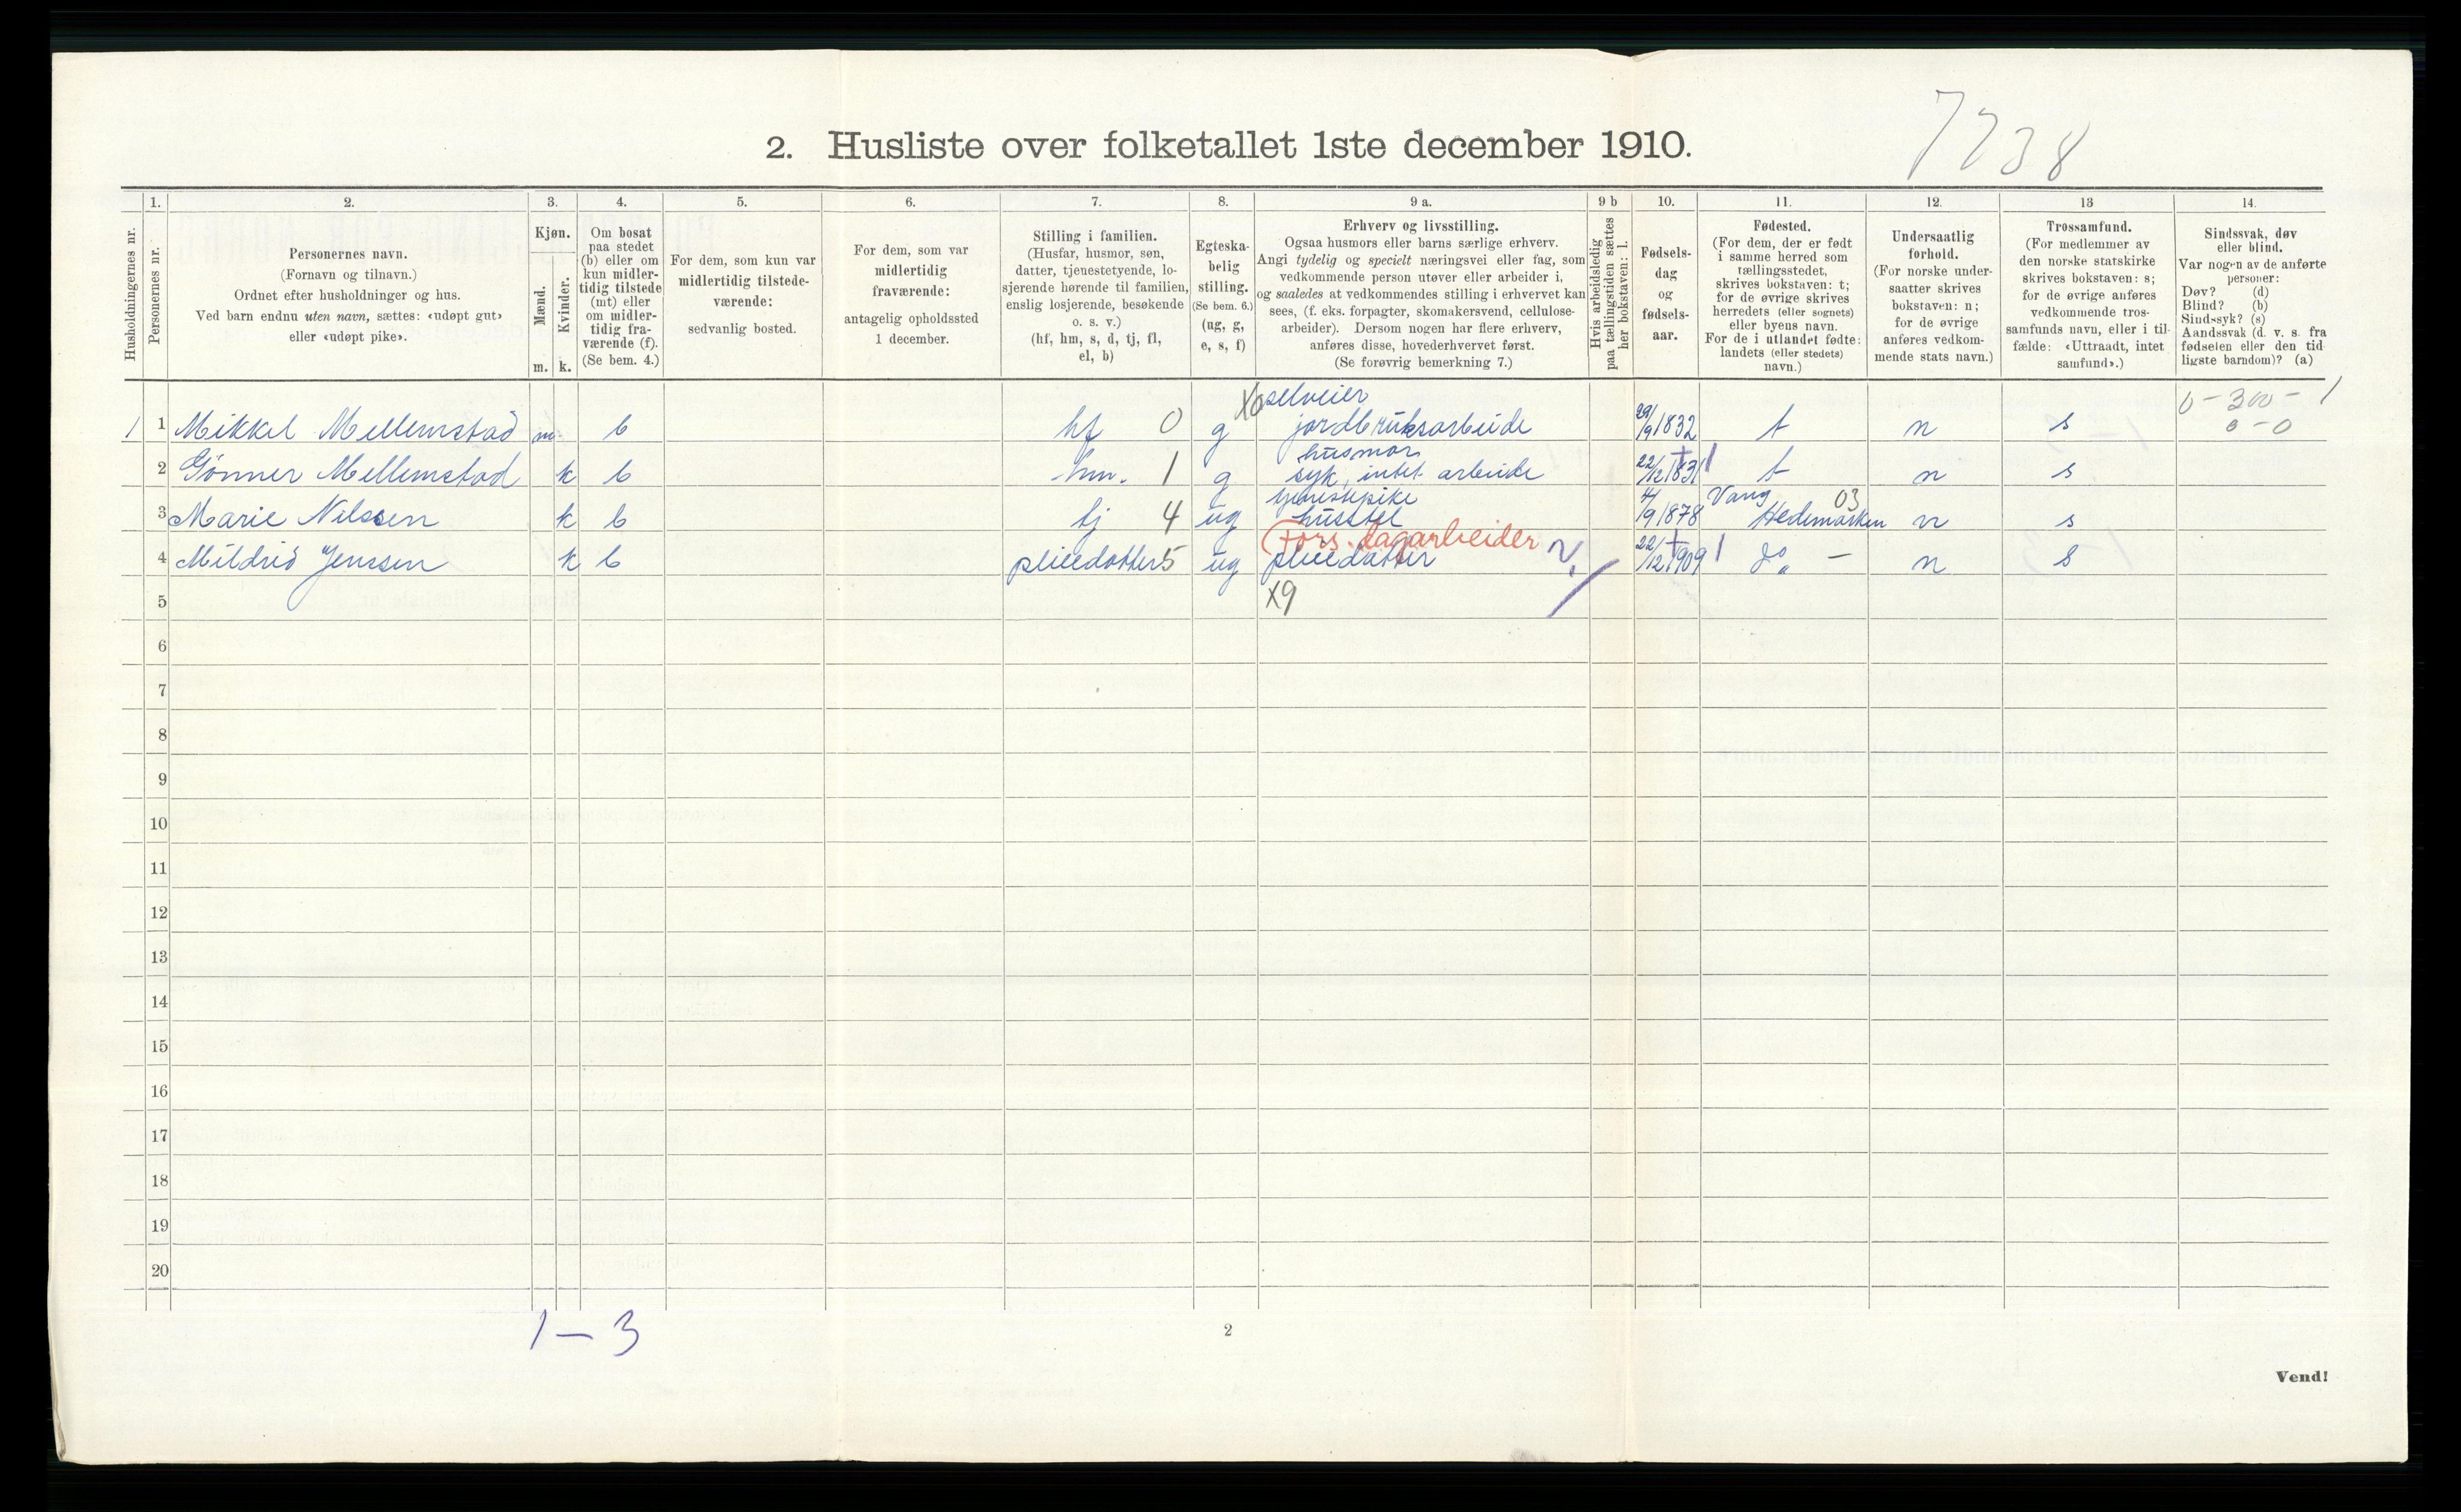 7738
2. Husliste over folketallet 1ste december 1910.
Husholdningernes nr.
1.
Personernes nr.
2.
Personernes navn.
(Fornavn og tilnavn.)
Ordnet efter husholdninger og hus.
Ved barn endnu uten navn, sættes: «udøpt gut»
eller «udøpt pike».
3.
Kjøn.
Mænd.
Kvinder.
m. k.
4.
Om bosat
paa stedet
(b) eller om
kun midler-
tidig tilstede
(mt) eller
om midler-
tidig fra-
værende (f).
(Se bem. 4.)
5.
For dem, som kun var
midlertidig tilstede-
værende:
sedvanlig bosted.
6.
For dem, som var
midlertidig
fraværende:
antagelig opholdssted
1 december.
7.
Stilling i familien.
(Husfar, husmor, søn,
datter, tjenestetyende, lo-
sjerende hørende til familien,
enslig losjerende, besøkende
o. s. v.)
(hf, hm, s, d, tj, fl,
el, b)
8.
Egteska-
belig
stilling.
(Se bem. 6.)
(ug, g,
e, s, f)
9 a.
Erhverv og livsstilling.
Ogsaa husmors eller barns særlige erhverv.
Angi tydelig og specielt næringsvei eller fag, som
vedkommende person utøver eller arbeider i,
og saaledes at vedkommendes stilling i erhvervet kan
sees, (f. eks. forpagter, skomakersvend, cellulose-
arbeider). Dersom nogen har flere erhverv,
anføres disse, hovederhvervet først.
(Se forøvrig bemerkning 7.)
9 b
Hvis arbeidsledig
paa tællingstiden sættes
her bokstaven: l.
10.
Fødsels-
dag
og
fødsels-
aar.
11.
Fødested.
(For dem, der er født
i samme herred som
tællingsstedet,
skrives bokstaven: t;
for de øvrige skrives
herredets (eller sognets)
eller byens navn.
For de i utlandet fødte:
landets (eller stedets)
navn.)
12.
Undersaatlig
forhold.
(For norske under-
saatter skrives
bokstaven: n;
for de øvrige
anføres vedkom-
mende stats navn.)
13
Trossamfund.
(For medlemmer av
den norske statskirke
skrives bokstaven: s;
for de øvrige anføres
vedkommende tros-
samfunds navn, eller i til-
fælde: «Uttraadt, intet
samfund».)
14.
Sindssvak, døv
eller blind.
Var nogen av de anførte
personer:
Døv? (d)
Blind? (b)
Sindssyk? (s)
Aandssvak (d. v. s. fra
fødselen eller den tid-
ligste barndom)? (a)
X0 selveier 0 - 300 - 1
1 1 Mikkel Mellemstad m b hf 0 g jordbruksarbeide 29/9 1832 t n s 0 - 0
husmor
2 Gönner Mellemstad k b hm. 1 g syk, intet arbeide 22/12 1831 t n s
tjenestepike Vang 03
3 Marie Nilssen k b tj 4 ug husstel 4/9 1878 Hedemarken n s
Fors. dagarbeider
4 Mildrid Jenssen k b pleiedatter 5 ug pleiedatter 22/12 1909 do — n s
5 X9
6
7
8
9
10
11
12
13
14
15
16
17
18
19
20
1 — 3
2
Vend!